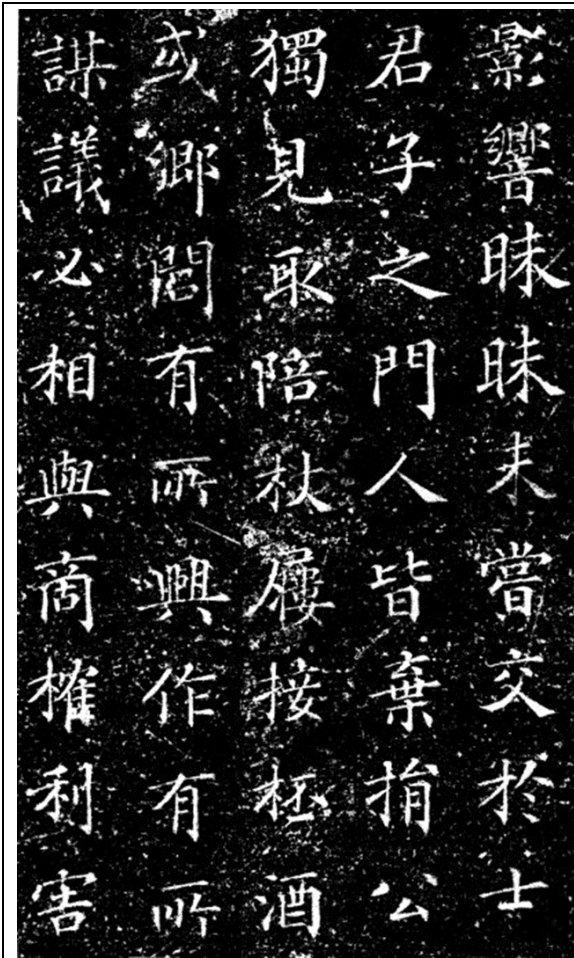 影響昧昧未嘗交於士
君子之門人皆棄捐公
獨見取陪杖屨接柸酒
或鄉閭有所興作有所
謀議必相與商榷利害